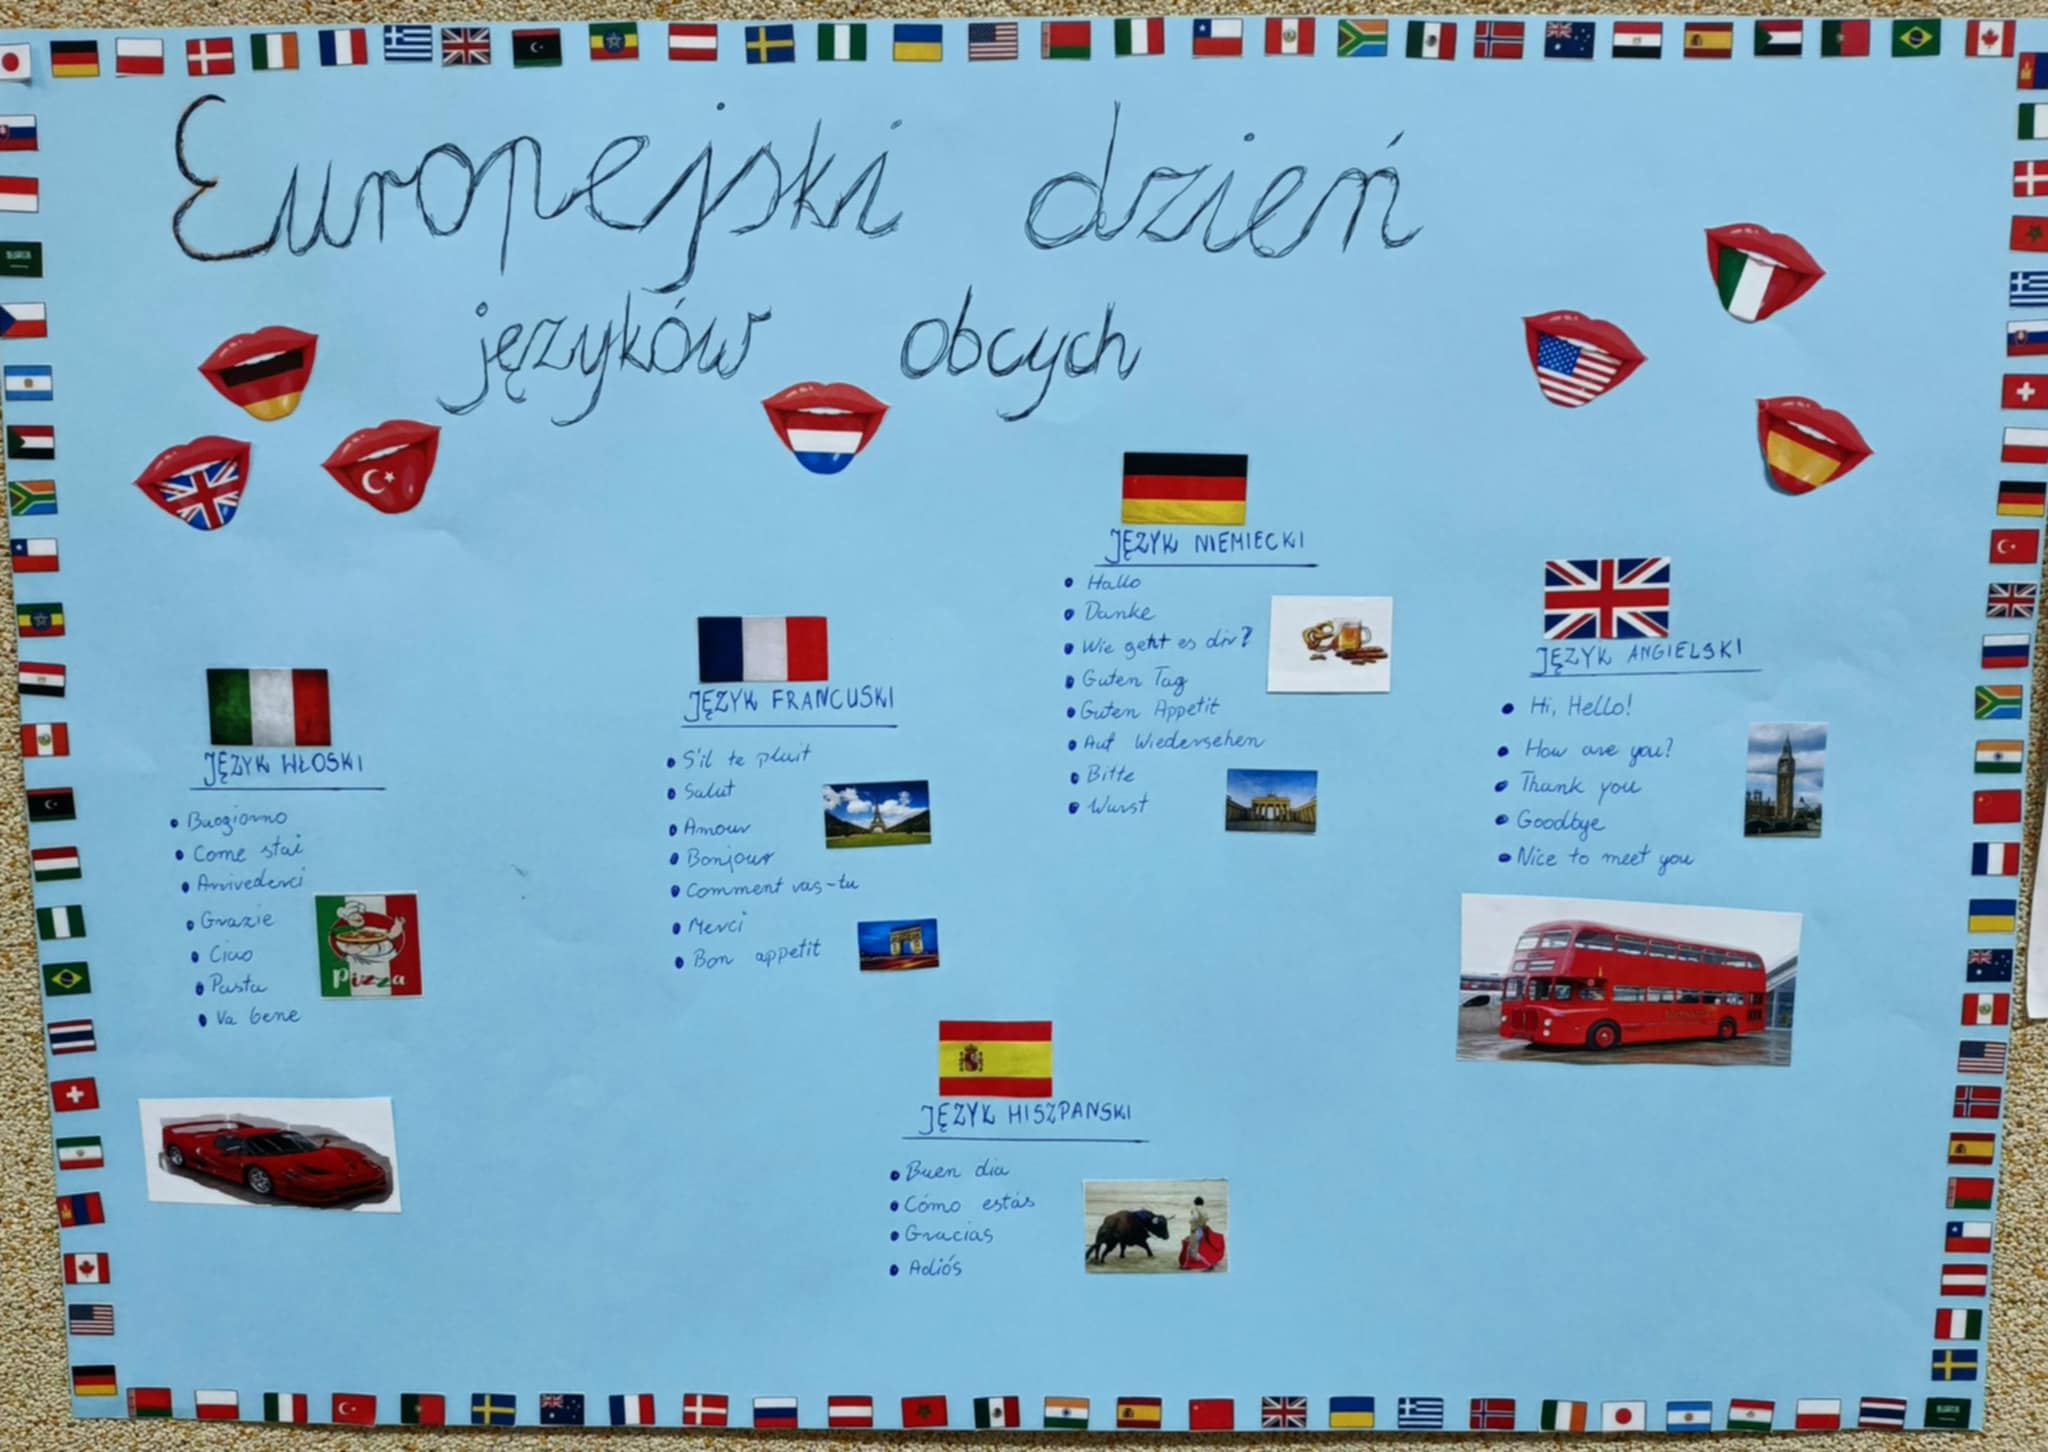 Europejski dzień
języków obcych
JĘZYK WŁOSKI
Buogiorno
Come stai
Arrivederci
Grazie
Ciao
Pasta
Va bene
pizza
JĘZYK FRANCUSKI
S'il te plait
Salut
Amour
Bonjour
Comment vas-tu
Merci
Bon appetit
JĘZYK NIEMIECKI
Hallo
Danke
Wie geht es dir?
Guten Tag
Guten Appetit
Auf Wiedersehen
Bitte
Wurst
JĘZYK ANGIELSKI
Hi, Hello!
How are you?
Thank you
Goodbye
Nice to meet you
JĘZYK HISZPANSKI
Buen dia
Cómo estás
Gracias
Adiós